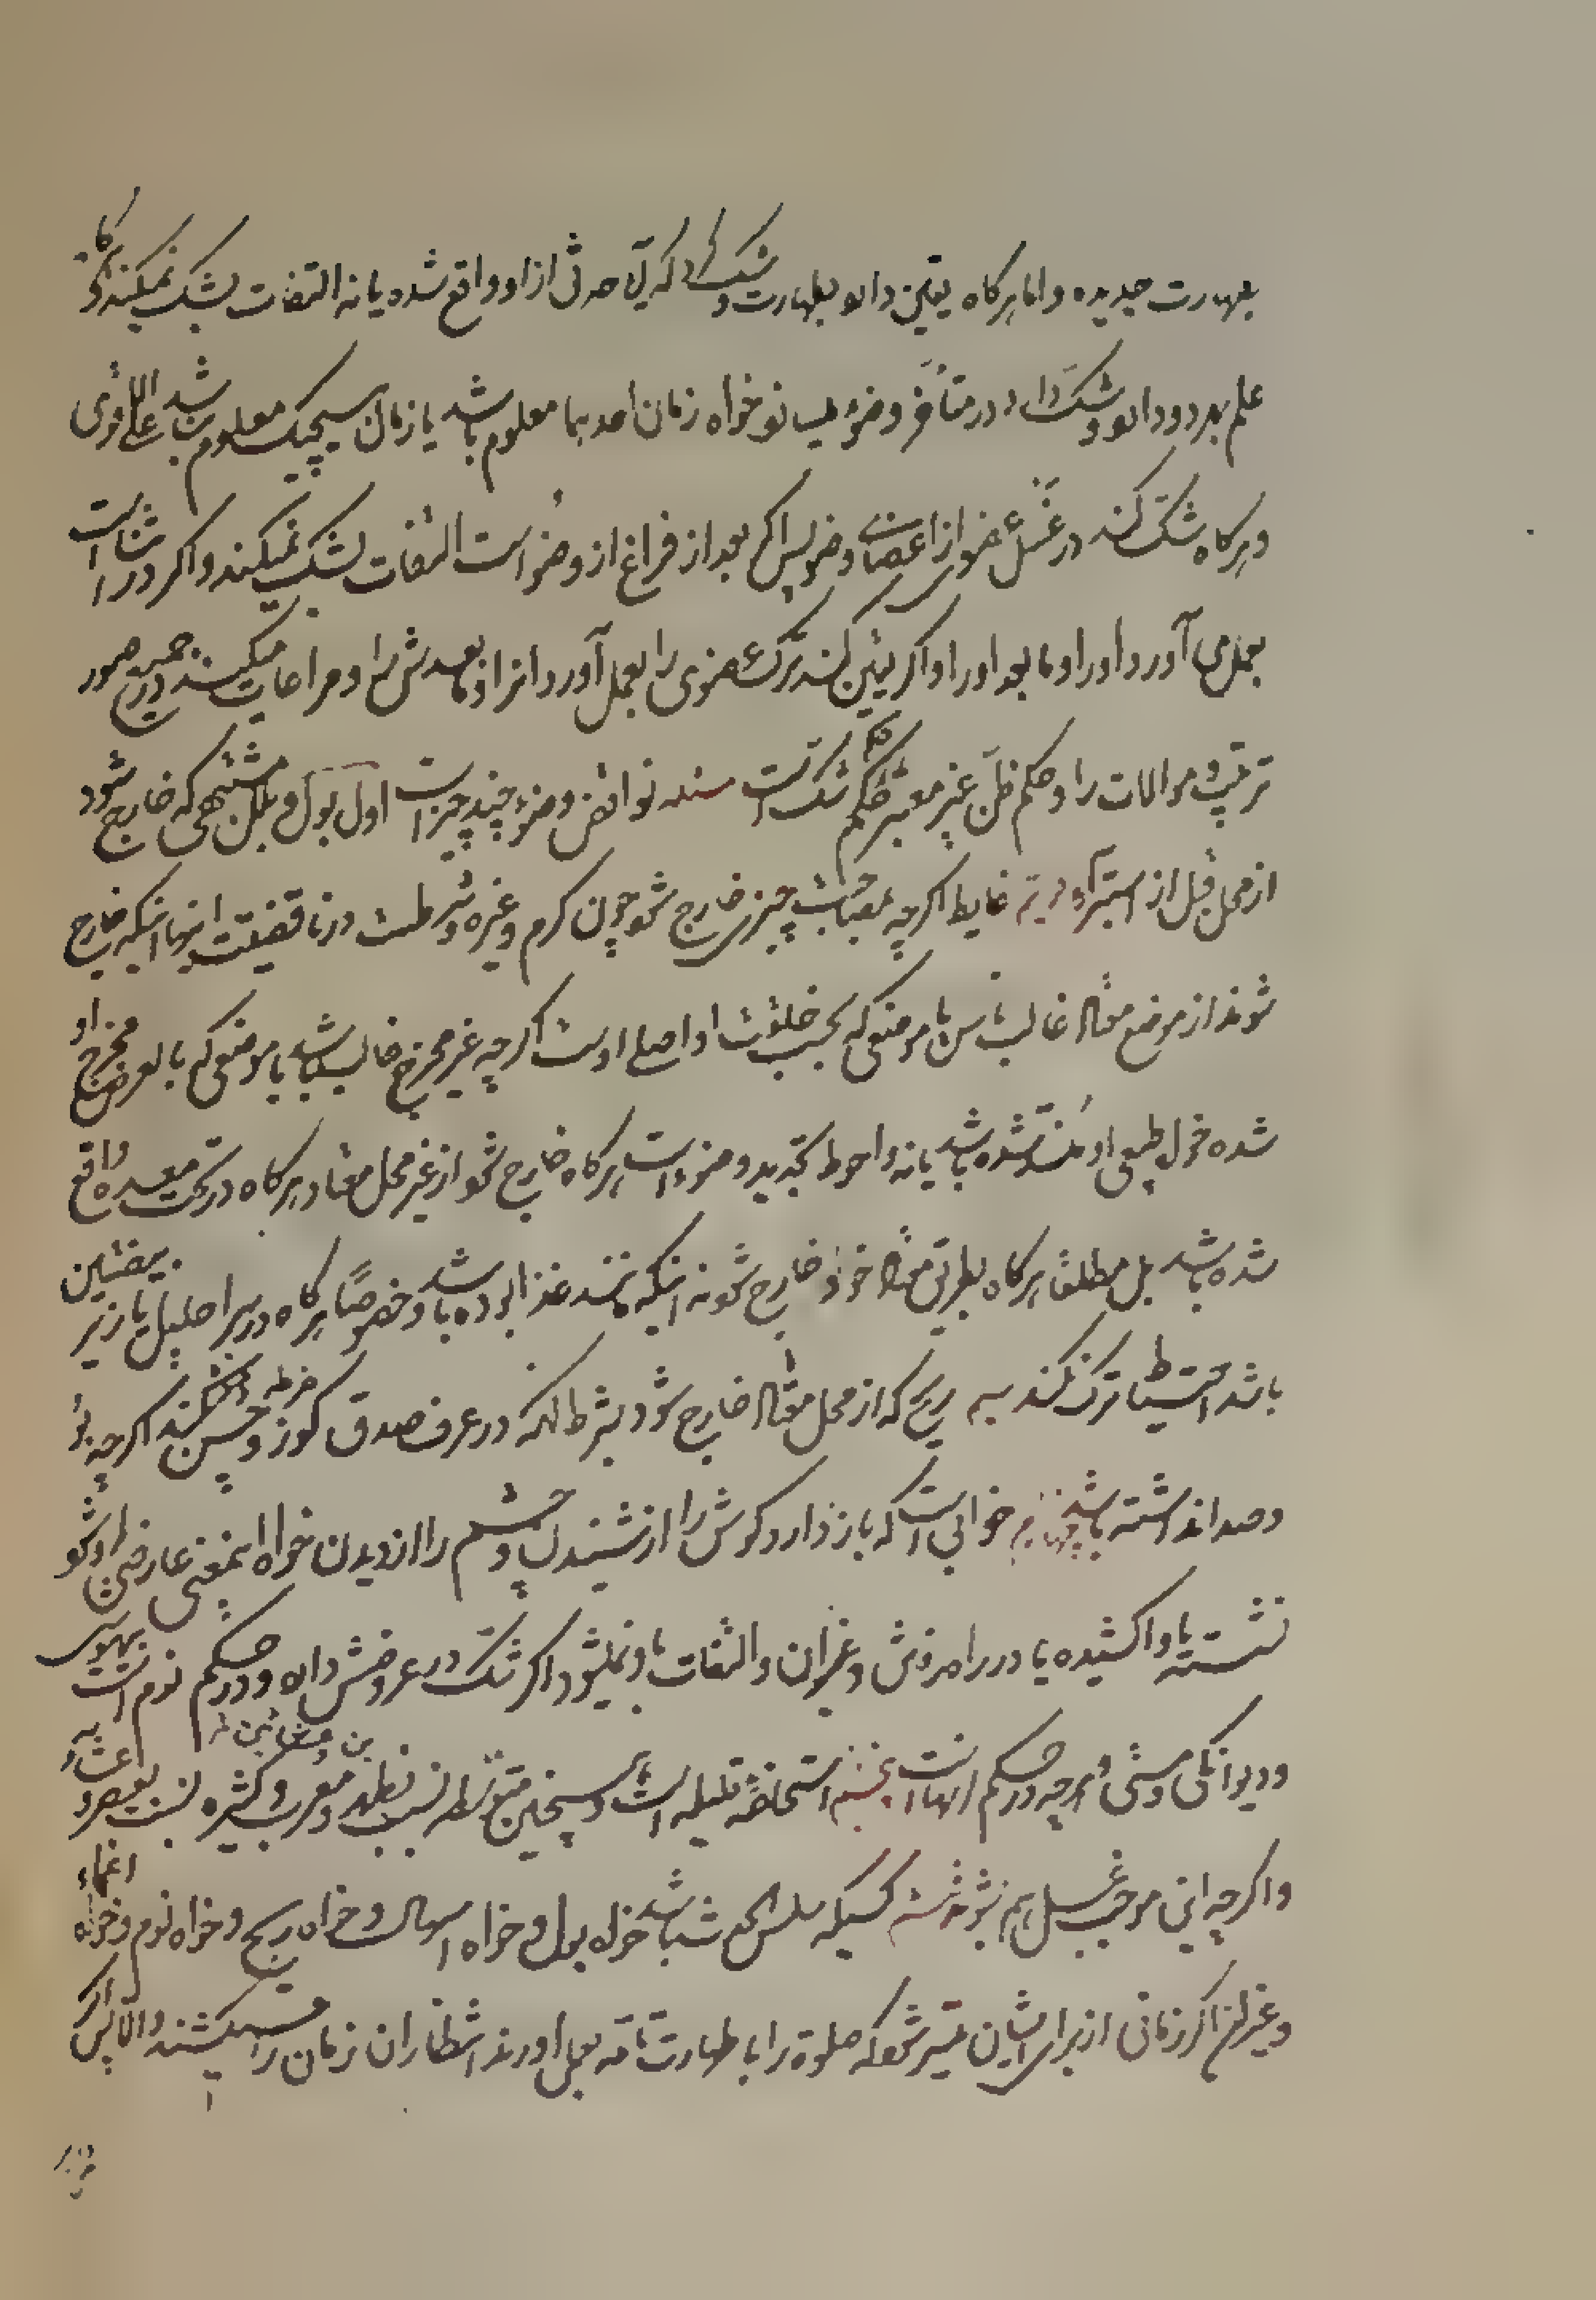 بطهارت جدیده و اما هرگاه یقین دارد بطهارت و شک دارد که آیا حدثی از او واقع شده یا نه التفات بشک نمیکند و هرگاه
علم بهر دو دارد و شک دارد در متأخر وضوء میسازد خواه زمان احدهما معلوم باشد یا زمان هیچیک معلوم نباشد علی الاقوی
و هرگاه شک کند در غسل عضوی از اعضای وضو پس اگر بعد از فراغ از وضو است التفات بشک نمیکند و اگر در اثنا است
بعمل می آورد او را و ما بعد او را و اگر یقین کند ترک عضوی را بعمل آورد انرا و ما بعدش را و مراعات میکند در جمیع صور
ترتیب و موالات را و حکم ظن غیر معتبر حکم شک است مسئله نواقض وضوء چند چیز است اول بول و بلل مشتبهی که خارج شود
از محل قبل از استبراء دویم غایط اگرچه بمصاحبت چیزی خارج شود چون کرم و غیره و شرطست در ناقضیت اینها اینکه خارج
شوند از موضع معتاد غالب ناس یا موضعی که بحسب خلقت او اصلی اوست اگرچه غیر مخرج غالب باشد یا موضعی که بالعرض مخرج او
شده خواه طبیعی او منسد شده باشد یا نه و احوط تجدید وضوء است هرگاه خارج شود از غیر محل معتاد هرگاه در تحت معده واقع
شده باشد بل مطلقا هرگاه بطریق معتاد خود خارج شود نه اینکه مانند غذا بوده باشد و خصوصا هرگاه در سر احلیل یا زیر بیضتین
باشد احتیاط ترک نکند سیم ریح که از محل معتاد خارج شود بشرط انکه در عرف صدق گوز و چسن کند اگرچه بو
و صدا نداشته باشد چهارم خوابی است که باز دارد گوش را از شنیدن و چشم را از دیدن خواه این معنی عارض او شود
نشسته یا واکشیده یا در راه رفتن و غیر ان و التفات باو نمیشود اگر شک در عروضش دارد و در حکم نوم است بیهوشی
و دیوانگی و مستی و هرچه در حکم اینها است پنجم استحاضه قلیله است و همچنین متوسطه نسبت بظهر و مغرب و کثیره نسبت بعصر و عشاء
و اگرچه این موجب غسل هم بشود کسیکه سلس الحدث باشد خواه بول و خواه اسهال و خواه ریح و خواه نوم و خواه اغماء
و غیر اینها اگر زمانی از برای ایشان میسر شود که صلوة را با طهارت تامه بعمل اورند انتظار ان زمان را میکشند و الا پس اگر